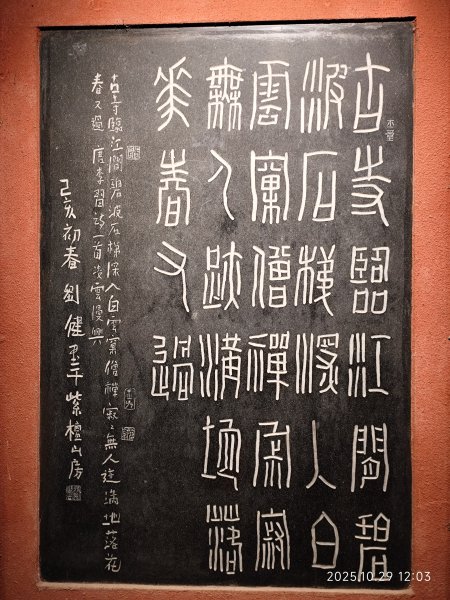 古寺臨江間碧
波石梯深入白
雲窠僧禪寂寂
無人跡滿地落
花春又過
古寺臨江間碧波石梯深入白雲窠僧禪寂〻無人迹滿地落花
春又過 唐李習詩一首凌雲漫興
己亥初春 劉健書于紫檀山房
2025.10.29 12:03